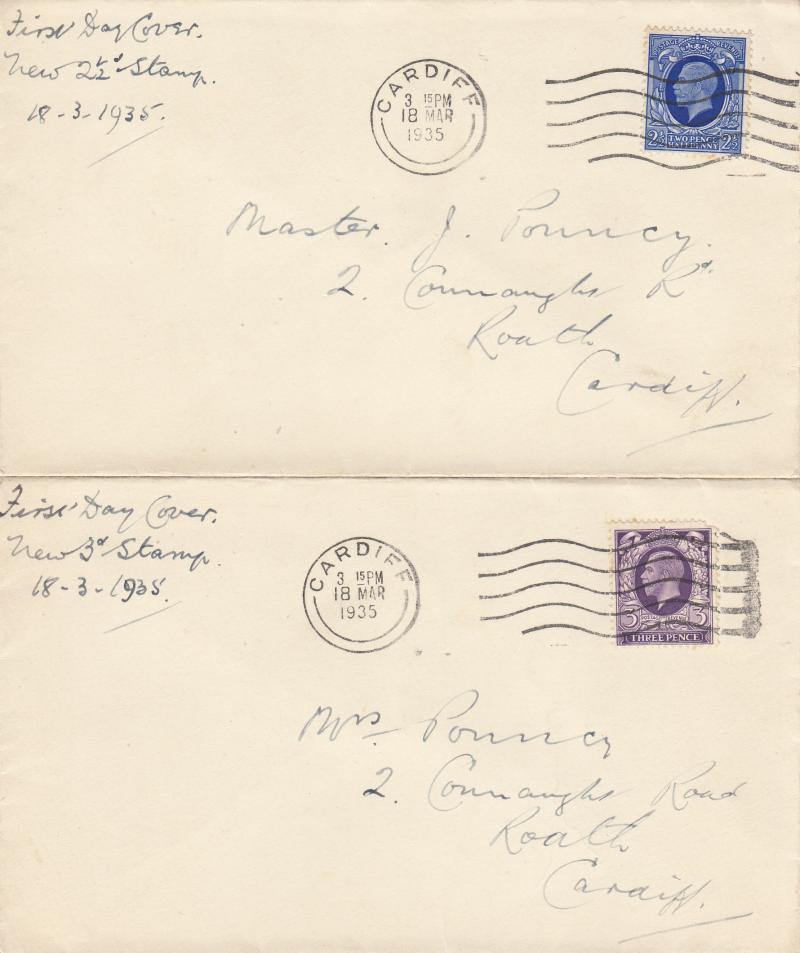 First Day Cover.
New 2½d Stamp.
18-3-1935.
CARDIFF
3 15 PM
18 MAR
1935
POSTAGE REVENUE
2½ TWO PENCE 2½
HALFPENNY
Master. J. Pouncy.
2. Connaught Rd.
Roath
Cardiff.
First Day Cover.
New 3d Stamp.
18-3-1935.
CARDIFF
3 15 PM
18 MAR
1935
3 POSTAGE REVENUE 3
THREE PENCE
Mrs Pouncy
2. Connaught Road
Roath
Cardiff.